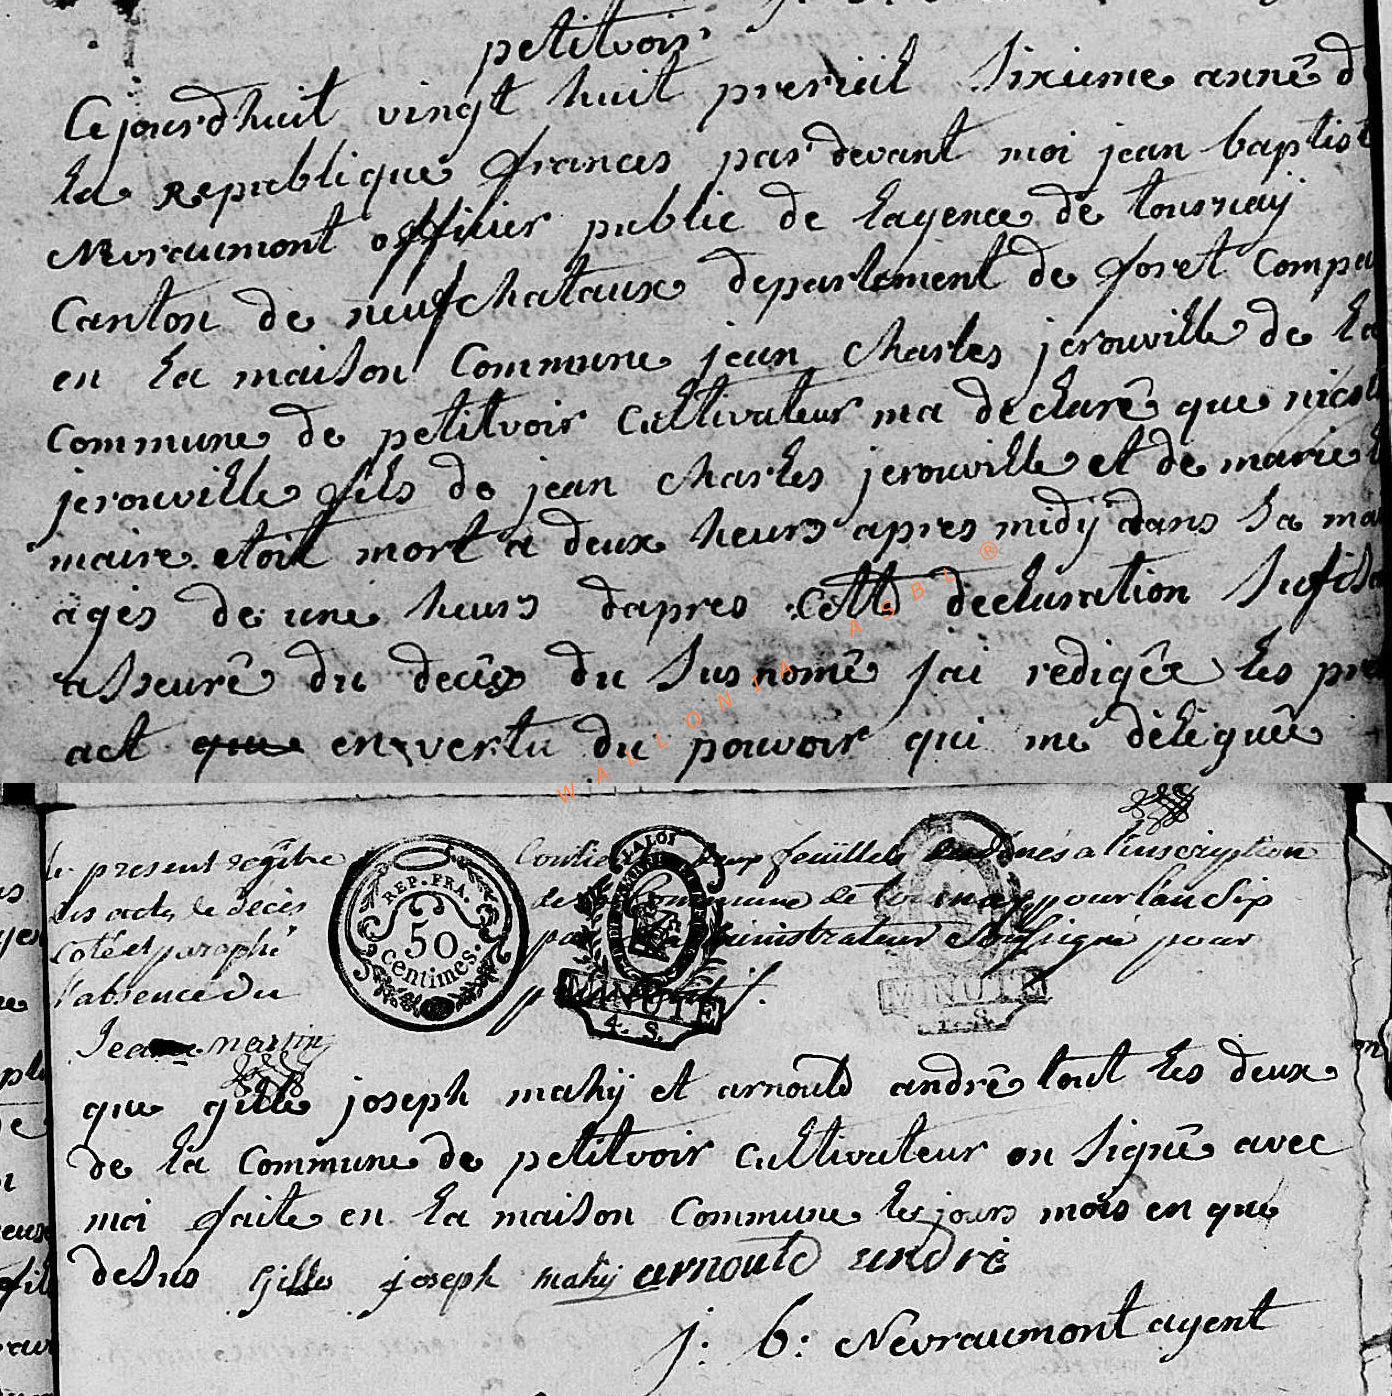 petitvoir
Cejourdhuit vingt huit preriail sixieme anné de
la Republique frances par devant moi jean baptist
Nevraumont officier public de lagence de tournay
Canton de neufchataux departement de foret Compa
en la maison Commune jean charles jerouville de la
commune de petitvoir cultivateur ma declaré que nicol
jerouville fils de jean charles jerouville et de marie
maire etoit mort a deux heurs apres midÿ dans sa mai
ages de une heurs dapres cette declaration sufisa
asseuré du decés du susnomé jai redigée les pre
act que en vertu du pouvoir qui me déléguée
WALLONIA ASBL ®
le present registre Contie deux feuillets destinés a l'inscription
des actes de décès de la Commune de tournay pour l'an six
Coté et paraphé par administrateur soussigné pour
l'absence du
Jean martin
REP. FRA.
50
centimes.
MINUTE
4. S.
MINUTE
que gille joseph mahÿ et arnould andré tout les deux
de la Commune de petitvoir cultivateur on signé avec
moi faite en la maison Commune les jours mois en que
desus Gille joseph mahÿ arnould andré
j: b: Nevraumont agent